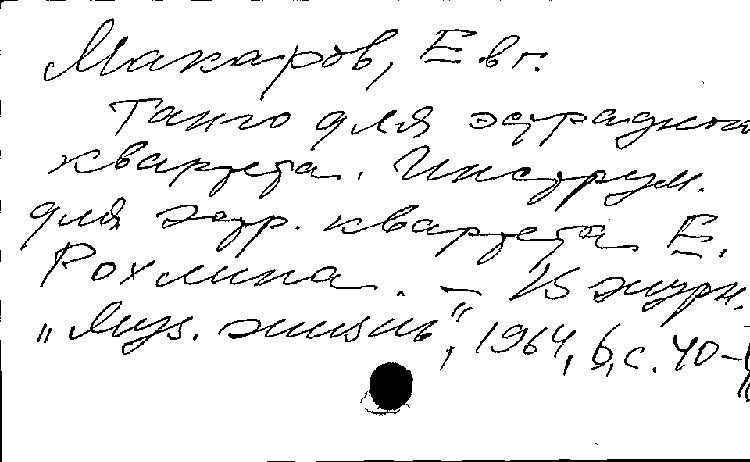 Макаров, Евг.
Танго для эстрадного
квартета. Инструм.
для эстр. квартета Е.
Рохлина. – В журн.
„Муз. жизнь“, 1964, 6, с. 40-